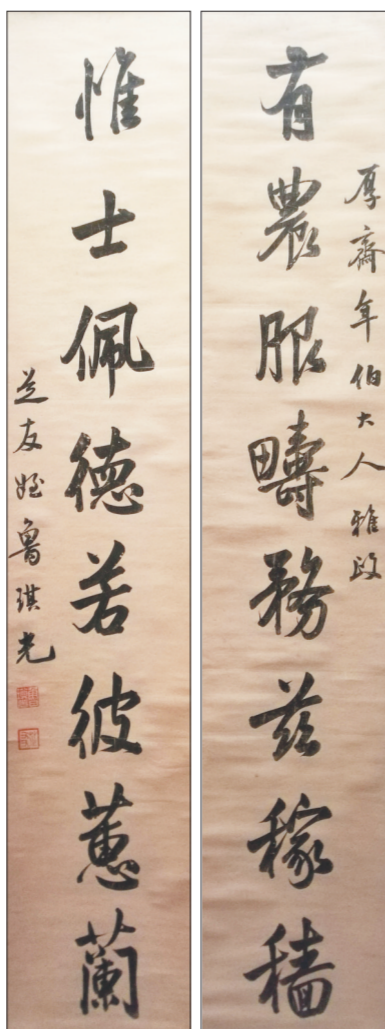 厚齋年伯大人雅政
有農服疇務兹稼穡
惟士佩德若彼蕙蘭
芝友姪魯琪光